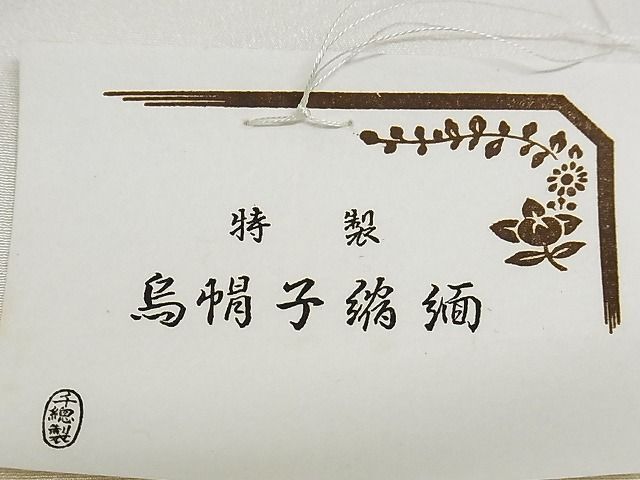 特製
烏帽子縮緬
千總製